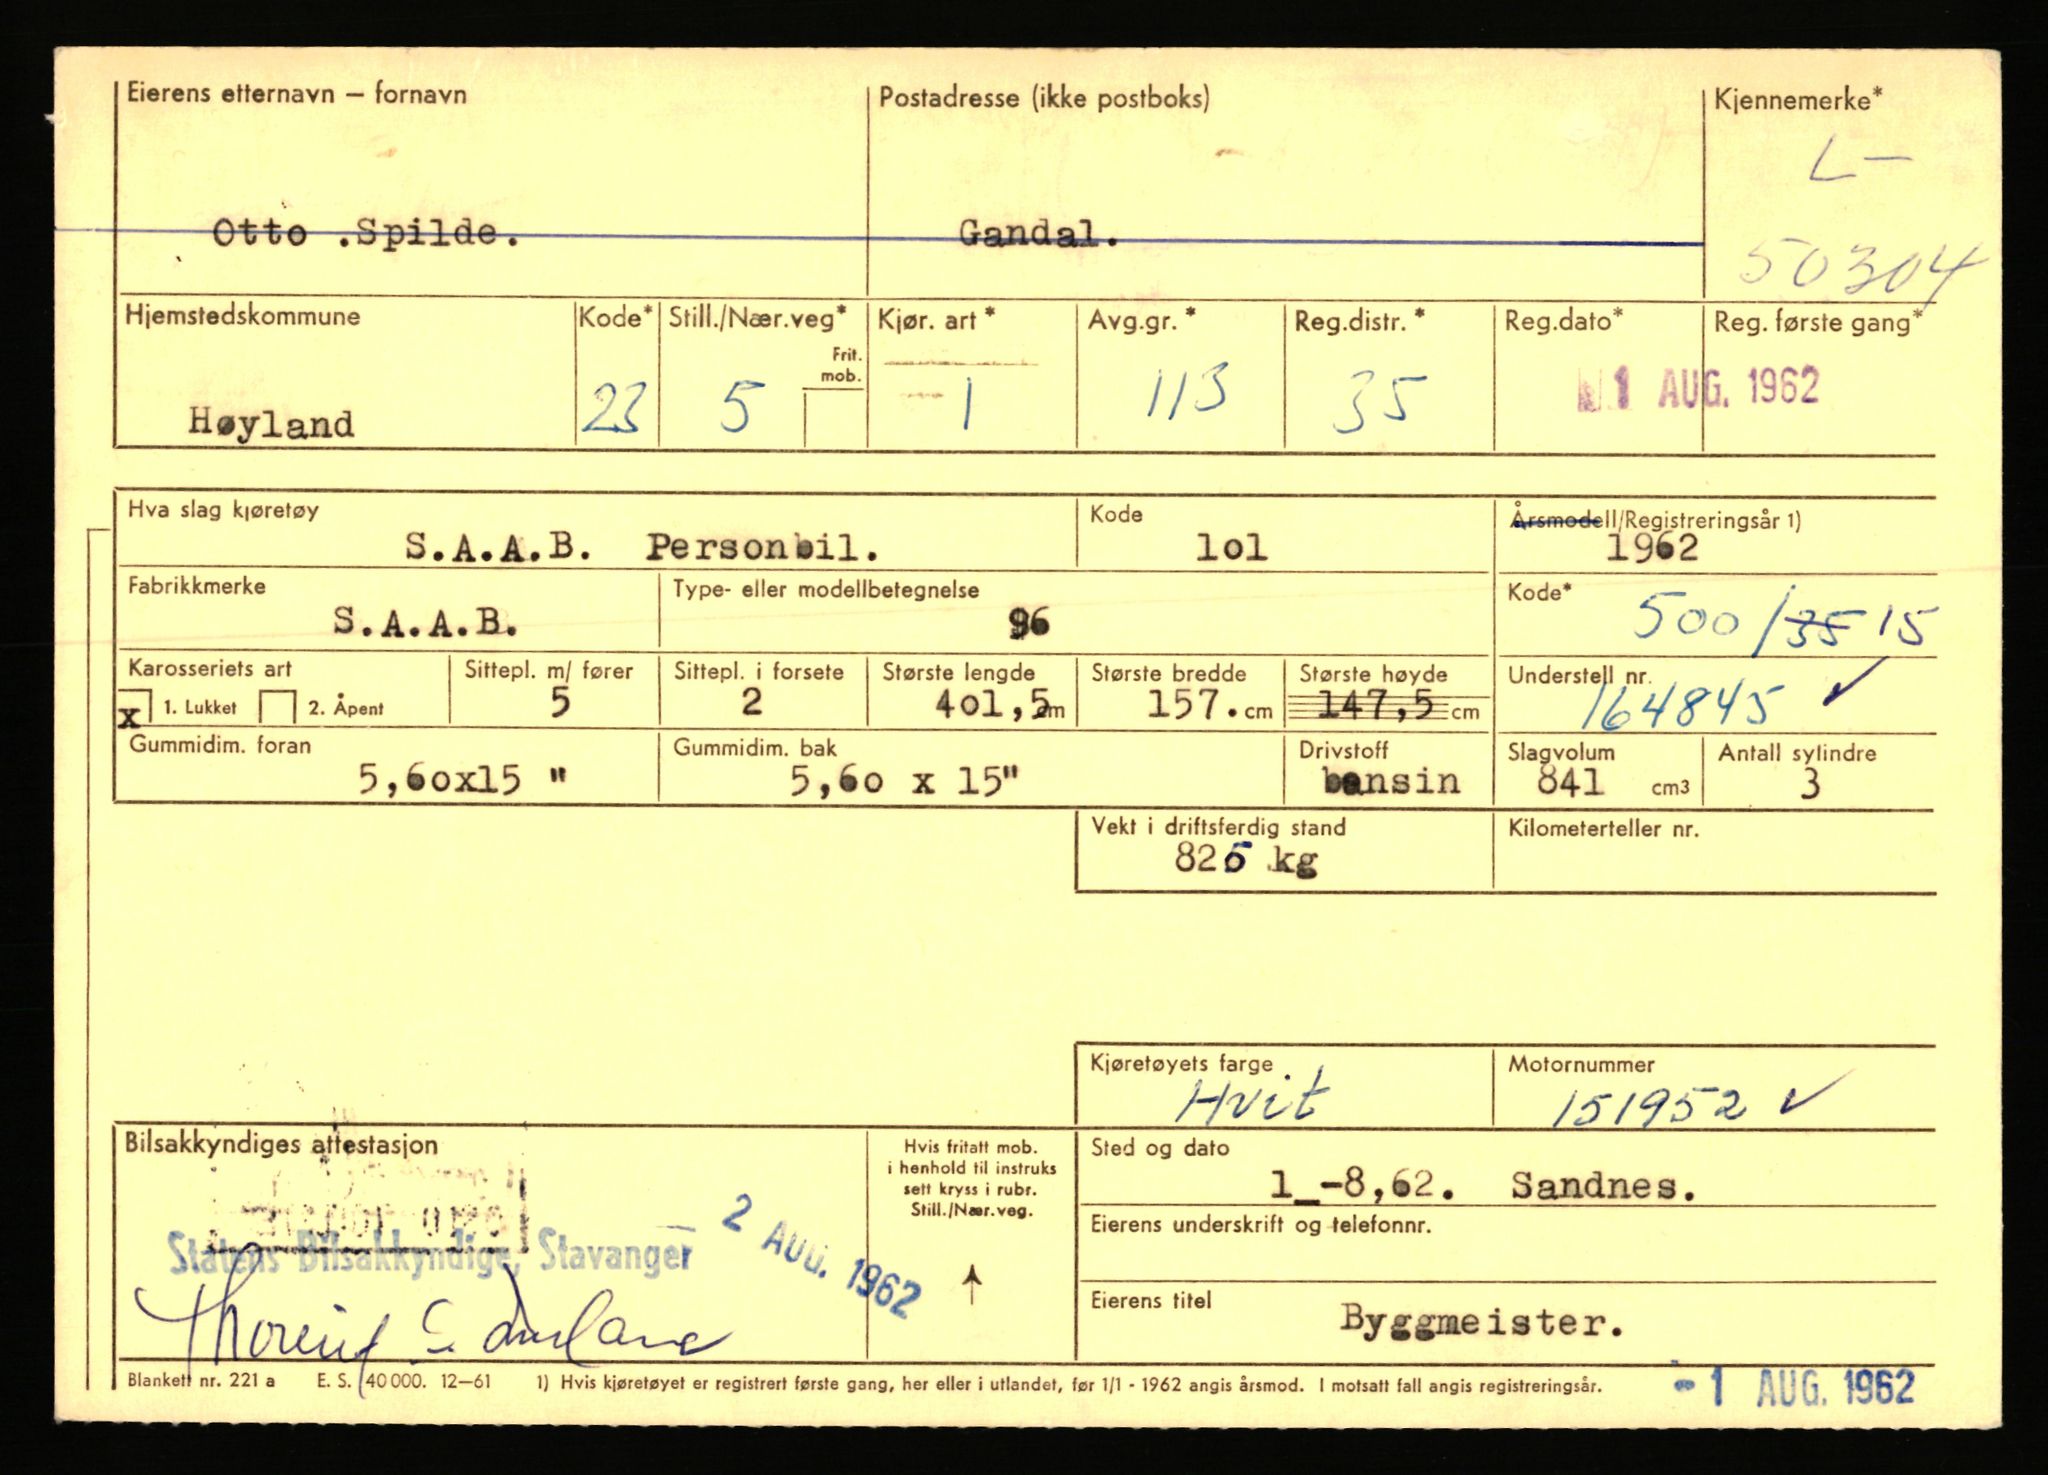 Eierens etternavn – fornavn Postadresse (ikke postboks) Kjennemerke*
L–
Otto .Spilde. Gandal.
50304
Hjemstedskommune Kode* Still./Nær.veg* Kjør. art * Avg.gr. * Reg.distr. * Reg.dato* Reg. første gang*
Frit.
mob.
Høyland 23 5 1 113 35 1 AUG. 1962
Hva slag kjøretøy Kode Årsmodell/Registreringsår 1)
S.A.A.B. Personbil. 1o1 1962
Fabrikkmerke Type- eller modellbetegnelse Kode*
S.A.A.B. 96 500/35 15
Karosseriets art Sittepl. m/ fører Sittepl. i forsete Største lengde Største bredde Største høyde Understell nr.
x 1. Lukket 2. Åpent 5 2 4o1,5 cm 157. cm 147,5 cm 164845 ✓
Gummidim. foran Gummidim. bak Drivstoff Slagvolum Antall sylindre
5,60x15 " 5,6o x 15" bensin 841 cm3 3
Vekt i driftsferdig stand Kilometerteller nr.
825 kg
Kjøretøyets farge Motornummer
Hvit 151952 ✓
Bilsakkyndiges attestasjon Hvis fritatt mob. Sted og dato
i henhold til instruks
sett kryss i rubr.
Still./Nær.veg.
1_-8,62. Sandnes.
Eierens underskrift og telefonnr.
Statens Bilsakkyndige, Stavanger – 2 AUG. 1962
Eierens titel
Byggmeister.
Blankett nr. 221 a E. S. 40 000. 12–61 1) Hvis kjøretøyet er registrert første gang, her eller i utlandet, før 1/1 - 1962 angis årsmod. I motsatt fall angis registreringsår.
- 1 AUG. 1962